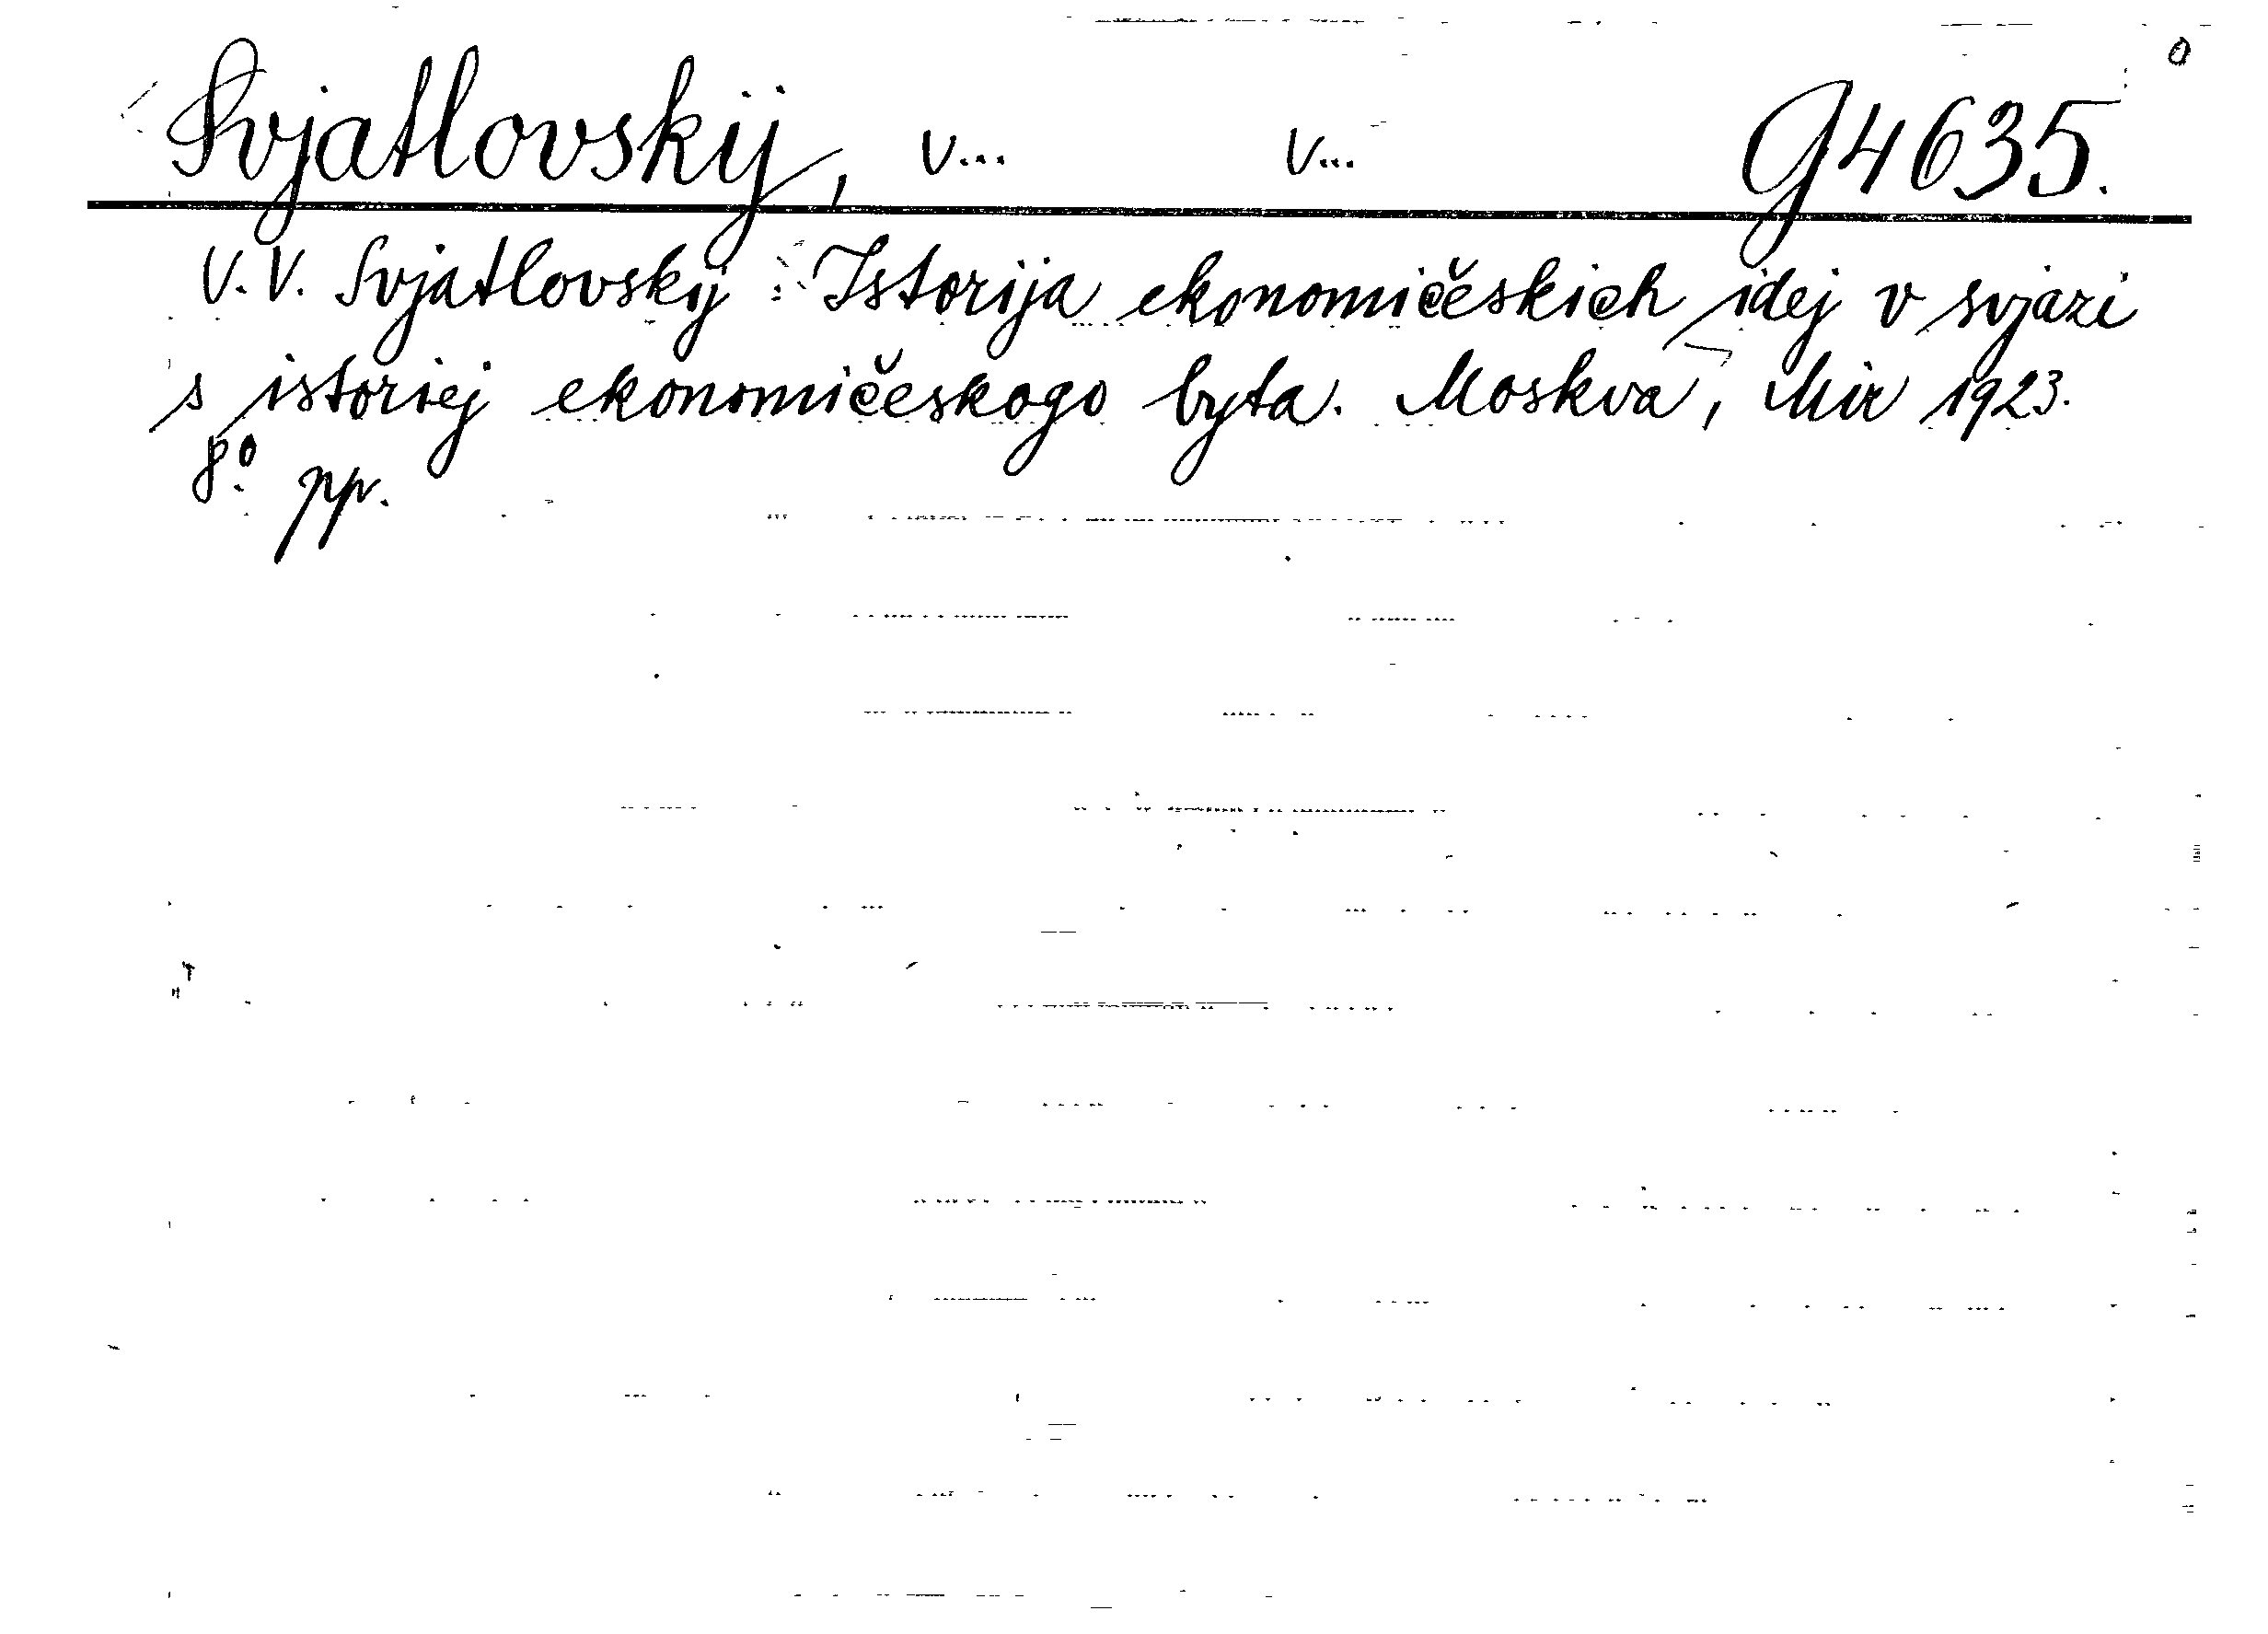 Svjatlovskij, V... V... G4635.
V.V. Svjatlovskij : Istorija ekonomičeskich idej v svjazi
s istoriej ekonomičeskogo byta. Moskva, Mir 1923.
8º. pp.